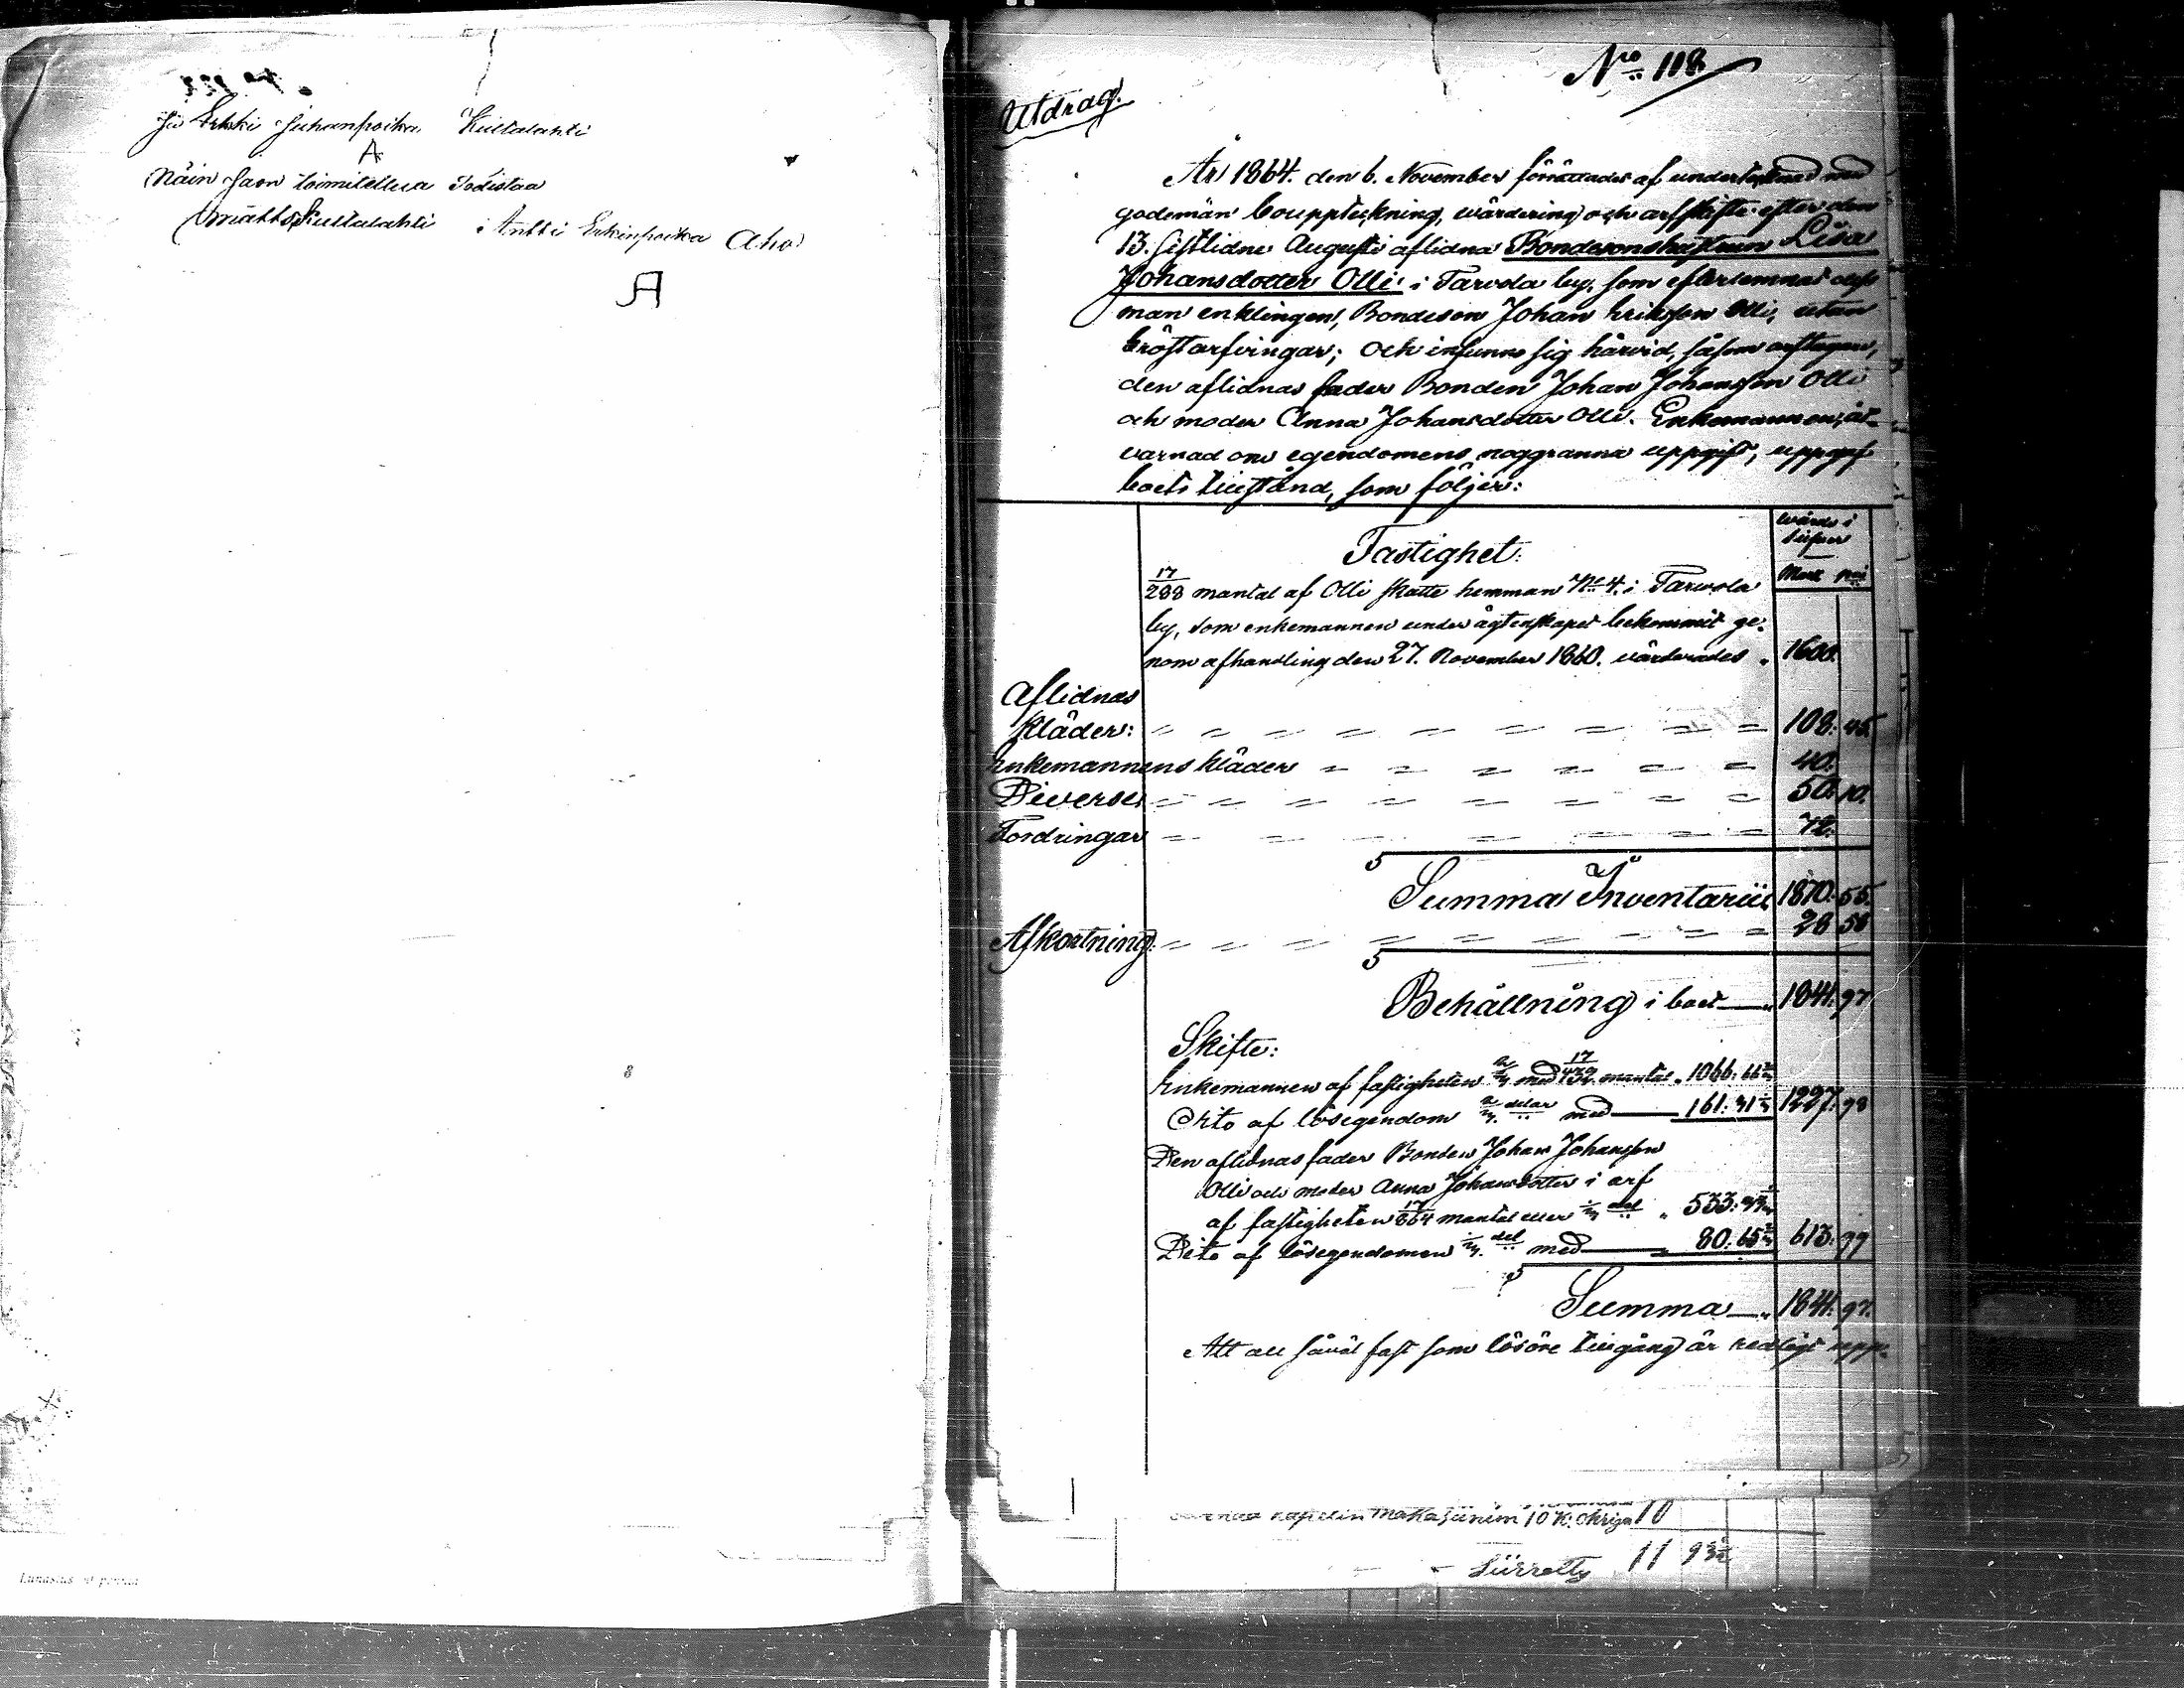 Erkki Juhanpoika Kultalahti
A
Näin Jaon toimitelluxi Todistaa
Matts Kultalahti Antti Erkinpoika Aho
A
No 118
Utdrag.
År 1864. den 6. November förrättades af undertecknad med
godemän bouppteckning, wärdering och arfskifte efter den
13. sistlidne Augusti aflidna Bondesonshustrun Lisa
Johansdotter Olli i Tarvola by, som efterlemnat dess
man enklingen, Bondeson Johan Eriksson Olli, utan
bröstarfvingar; och infunno sig härvid, såsom arftagare,
den aflidnas fader Bonden Johan Johansson Olli
och moder Anna Johansdotter Olli. Enkemannen, åt-
varnad om egendomens noggranna uppgift, uppgaf
boets tillstånd, som följer:
Wärde i
Silfver
Mark pni
Fastighet:
17/288 mantal af Olli skatte hemman No 4. i Tarvola
by, som enkemannen under ägtenskapet bekommit ge-
nom afhandling den 27. November 1860. värderades „ 1600.
Aflidnas
Kläder: 108. 45.
Enkemannens kläder 40.
Diverse 50. 10.
Fordringar 72.
S
Summa Inventarii 1870. 55.
Afkortning: 28 58
S
Behållning i boet 1841. 97
Skifte:
Enkemannen af fastigheten 2/3 med 17/432 mantal „ 1066. 66 2/3
Dito af lösegendom 2/3 delar med 161. 31 1/3 1227. 98
Den aflidnas fader Bonden Johan Johansson
Olli och moder Anna Johansdotter i arf
af fastigheten 17/864 mantal eller 1/3 del „ 533. 33 1/3
Dito af lösegendomen 1/3 del med 80. 65 2/3 613. 99
S
Summa 1841. 97.
Att all såväl fast som lösöre tillgång är redligt upp-
makasiinim 10 K.
10
Siirretty 11 93